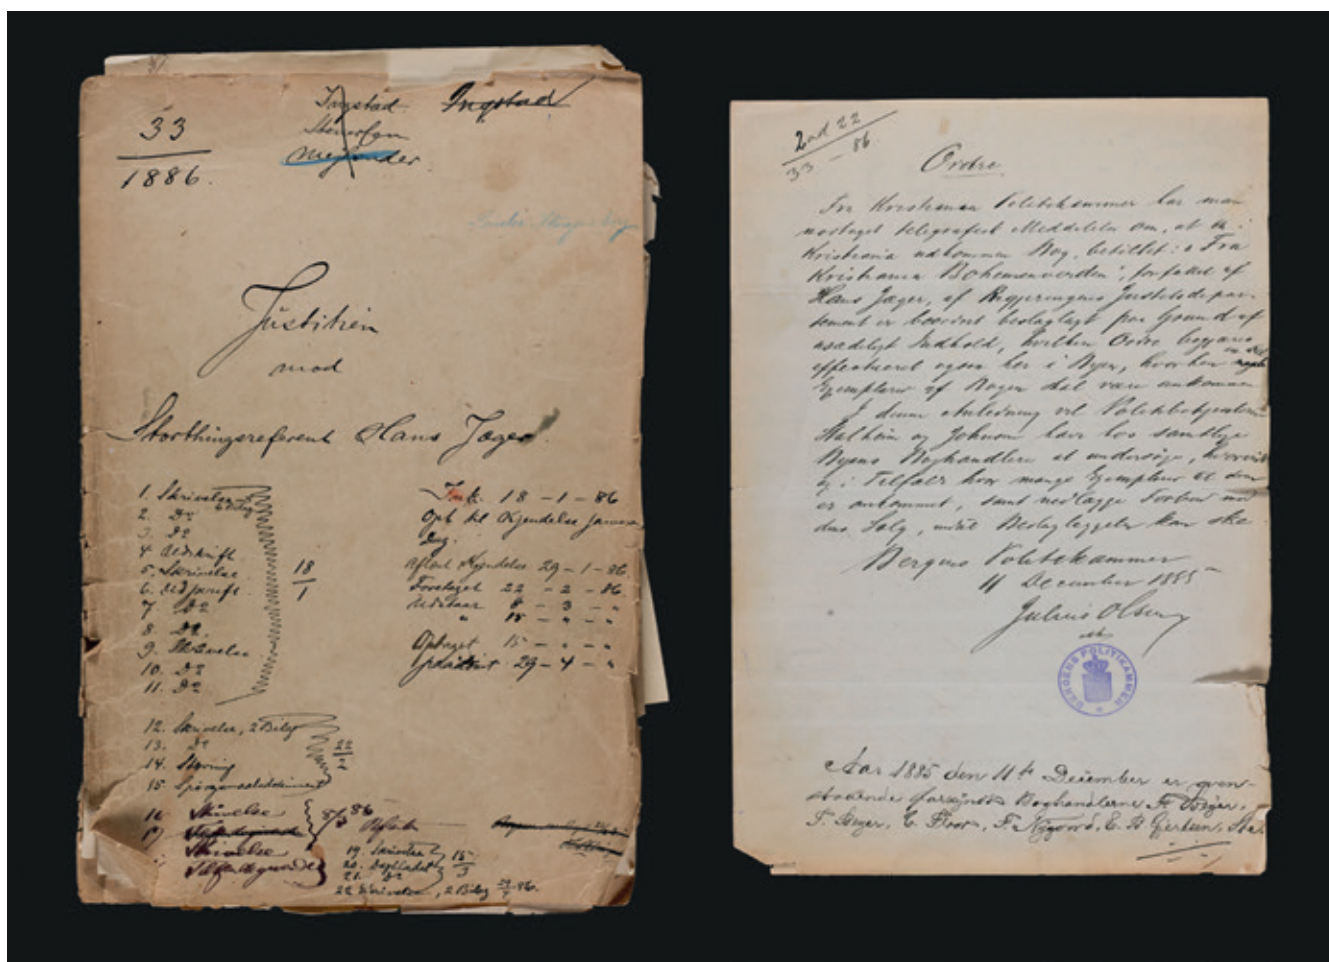 33
1886.
Ingstad. Ingstad
Stenersen
Justitien
mod
Storthingsreferent Hans Jæger.
1. Skrivelse
2. Do
3. Do
4 Udskrift
5. Skrivelse
6. Udskrift.
7 Do
8. Do.
9. Skrivelse
10. Do
11. Do
18
1
18 - 1 - 86
Opt til Kjendelse samme
Dag.
Afsagt Kjendelse 29 - 1 - 86
Foretaget 22 - 2 - 86
Udstaar 8 - 3 - "
" 15 - " - "
Optaget 15 - " - "
29 - 4 - "
12. Skrivelse, 2 Bilag
13. Do
14. Stævning
15.
22
2
16 Skrivelse
17
Skrivelse
8/3 86
19. Skrivelse
20. Dagbladet
21. Do
15
3
22 Skrivelse, 2 Bilag 86.
2 ad 22
33 - 86.
Ordre.
Fra Kristiania Politikammer har man
modtaget telegrafisk Meddelelse om, at en i
Kristiania udkommen Bog, betitlet: "Fra
Kristiania Bohêmen", forfattet af
Hans Jæger, af Regjeringens Justitsdepar-
tement er beordret beslaglagt paa Grund af
usædeligt Indhold, hvilken Ordre begjæres
effektueret ogsaa her i Byen, hvor en Del
Exemplarer af Bogen skal være ankommen
I denne Anledning vil Politibetjentene
Stalheim og Johnsen have hos samtlige
Byens Boghandlere at undersøge, hvorvidt
og i Tilfælde hvor mange Exemplarer af den
er ankommet, samt nedlægge Forbud mod
dens Salg, indtil Beslaglæggelse kan ske.
Bergens Politikammer
11 December 1885
Julius Olsen
BERGENS POLITIKAMMER
Aar 1885 den 11te December er oven-
staaende Boghandlerne Fr. Beyer,
F. Beyer, C. Floor, F. Nygaard, E. B Giertsen,